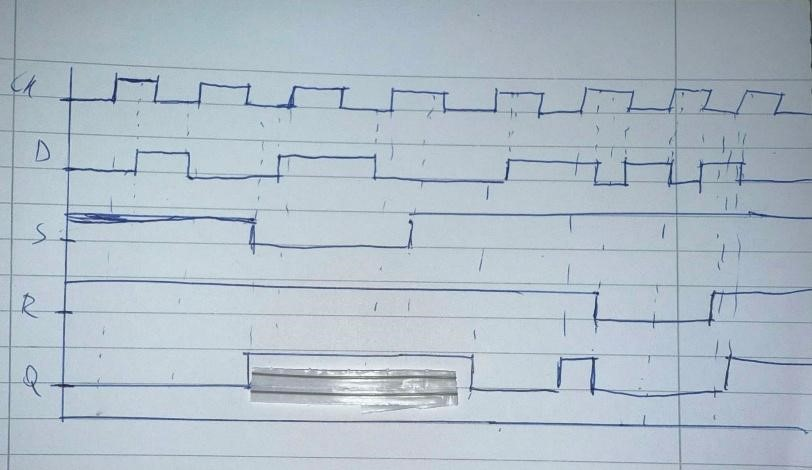 Ck
D
S
R
Q